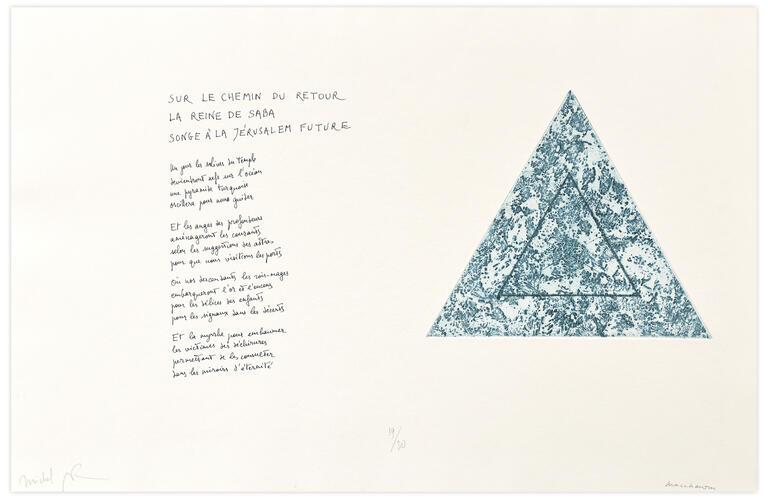 SUR LE CHEMIN DU RETOUR
LA REINE DE SABA
SONGE À LA JÉRUSALEM FUTURE
Un jour les solives du temple
deviendront nefs sur l'océan
une pyramide turquoise
oscillera pour nous guider
Et les anges des profondeurs
aménageront les courants
selon les suggestions des astres
pour que nous visitions les ports
Où nos descendants les rois-mages
embarqueront l'or et l'encens
pour les délices des enfants
pour les signaux dans les déserts
Et la myrrhe pour embaumer
les victimes des déchirures
permettant de les consulter
dans les miroirs d'éternité
19/30
Michel